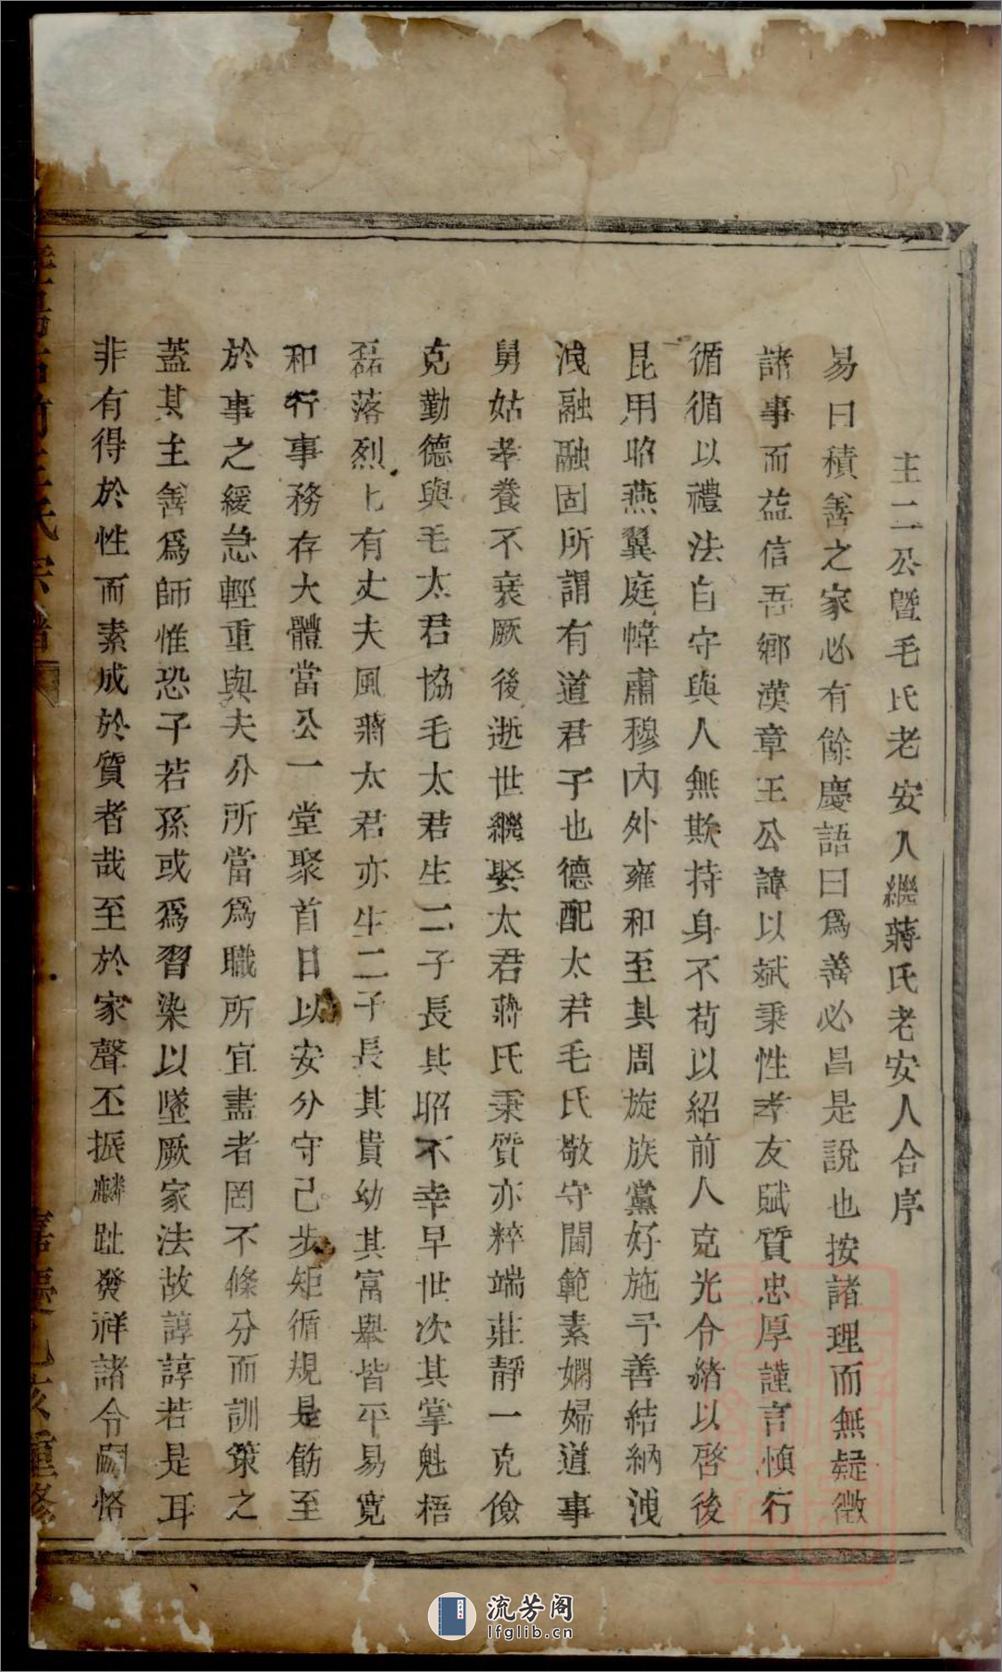 主二公暨毛氏老安人繼蔣氏老安人合序
易曰積善之家必有餘慶語曰爲善必昌是說也按諸理而無疑徵
諸事而益信吾鄉漢章王公諱以斌秉性孝友賦質忠厚謹言愼行
循循以禮法自守與人無欺持身不苟以紹前人克光令緒以啓後
昆用昭燕翼庭幃肅穆內外雍和至其周旋族黨好施予善結納洩
洩融融固所謂有道君子也德配太君毛氏敬守閫範素嫻婦道事
舅姑孝養不衰厥後逝世繼娶太君蔣氏秉質亦粹端莊靜一克儉
克勤德與毛太君協毛太君生二子長其昭不幸早世次其掌魁梧
磊落烈七有丈夫風蔣太君亦生二子長其貴幼其富舉皆平易寬
和行事務存大體當公一堂聚首日以安分守己步矩循規是飭至
於事之緩急輕重與夫分所當爲職所宜盡者罔不條分而訓策之
蓋其主善爲師惟恐子若孫或爲習染以墜厥家法故諄諄若是耳
非有得於性而素成於質者哉至於家聲丕振麟趾發祥諸令嗣恪
王氏宗譜
嘉慶乙亥重修
流芳阁
lfglib.cn